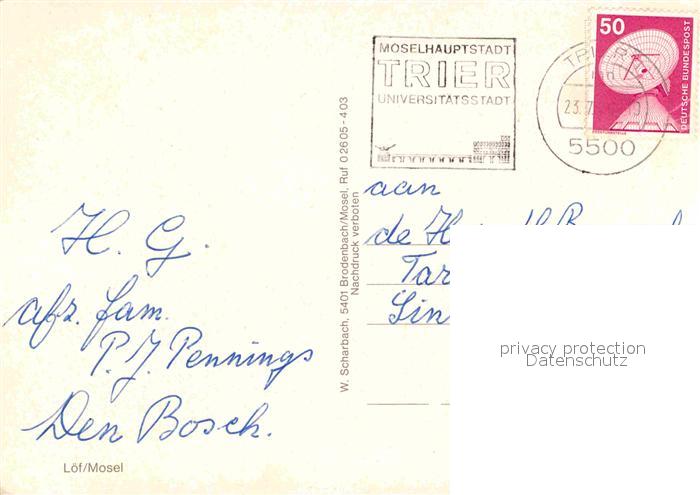 MOSELHAUPTSTADT
TRIER
UNIVERSITÄTSSTADT
TRIER
23.7
5500
50
DEUTSCHE BUNDESPOST
aan
de H
Tar
Lin
H. G.
afz. fam.
P. J. Pennings
Den Bosch.
Löf/Mosel
W. Scharbach, 5401 Brodenbach/Mosel, Ruf 0 26 05 - 4 03
Nachdruck verboten
privacy protection
Datenschutz